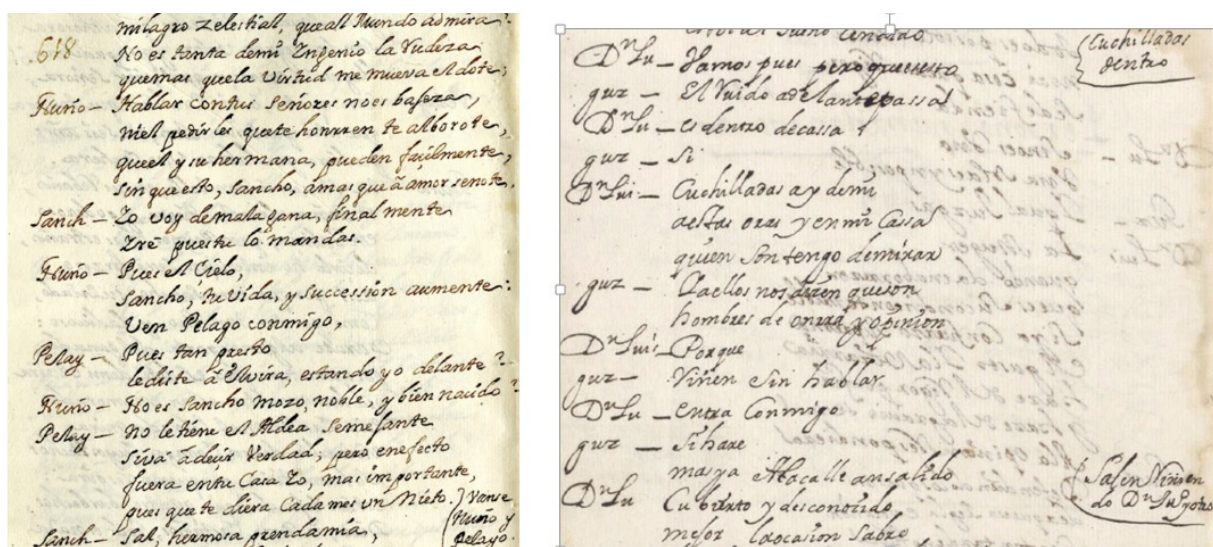 milagro zelestial, queall Mundo admira?
618 No es tanta demi Yngenio la Rudeza
quemas quela Virtud me mueva el dote;
Nuño — Hablar contus Señores noes bajeza,
niel pedirles quete honrren te alborote,
queel y su hermana, pueden façilmente,
sin que esto, Sancho, amas que â amor senote.
Sanch — Yo voy demala gana, finalmente
Yrè pues tu lo mandas.
Nuño — Pues el Çielo,
Sancho, tu Vida, y Succession aumente:
Ven Pelayo conmigo,
Pelay — Pues tan presto
lediste â Elvira, estando yo delante?
Nuño — No es Sancho mozo, noble, y bien nacido?
Pelay — No letiene el Aldea Semejante
Siva âdeçir Verdad; pero enefecto
fuera entu Casa Yo, mas importante,
pues que te diera Cada mes un Nieto. ) Vanse
Nuño y
Pelayo.
Sanch — Sal, hermosa prendamia,
(Cuchilladas
dentro
Dn Lu — Vamos pues pero quees esto
guz — El Ruido adelante passa
Dn Lu — es dentro decassa
guz — Si
Dn Lui — Cuchilladas ay demi
aestas oras y en mi Cassa
quien son tengo demirar
guz — Yaellos nos diçen queson
hombres de onrra y opinion
Dn Luis — Porque
guz — Riñen Sin hablar
Dn Lu — entra Conmigo
guz — Si hare
mas ya Alacalle ansalido
Dn Lu Cubierto y desconozido
mejor laocasion Sabre
Salen Riñen
do Dn Lu y otro